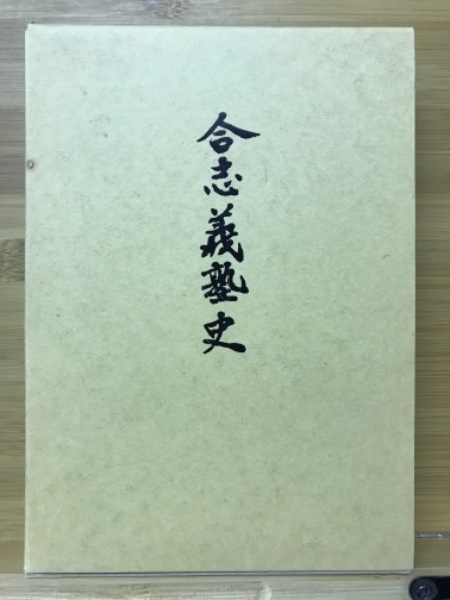 合志義塾史